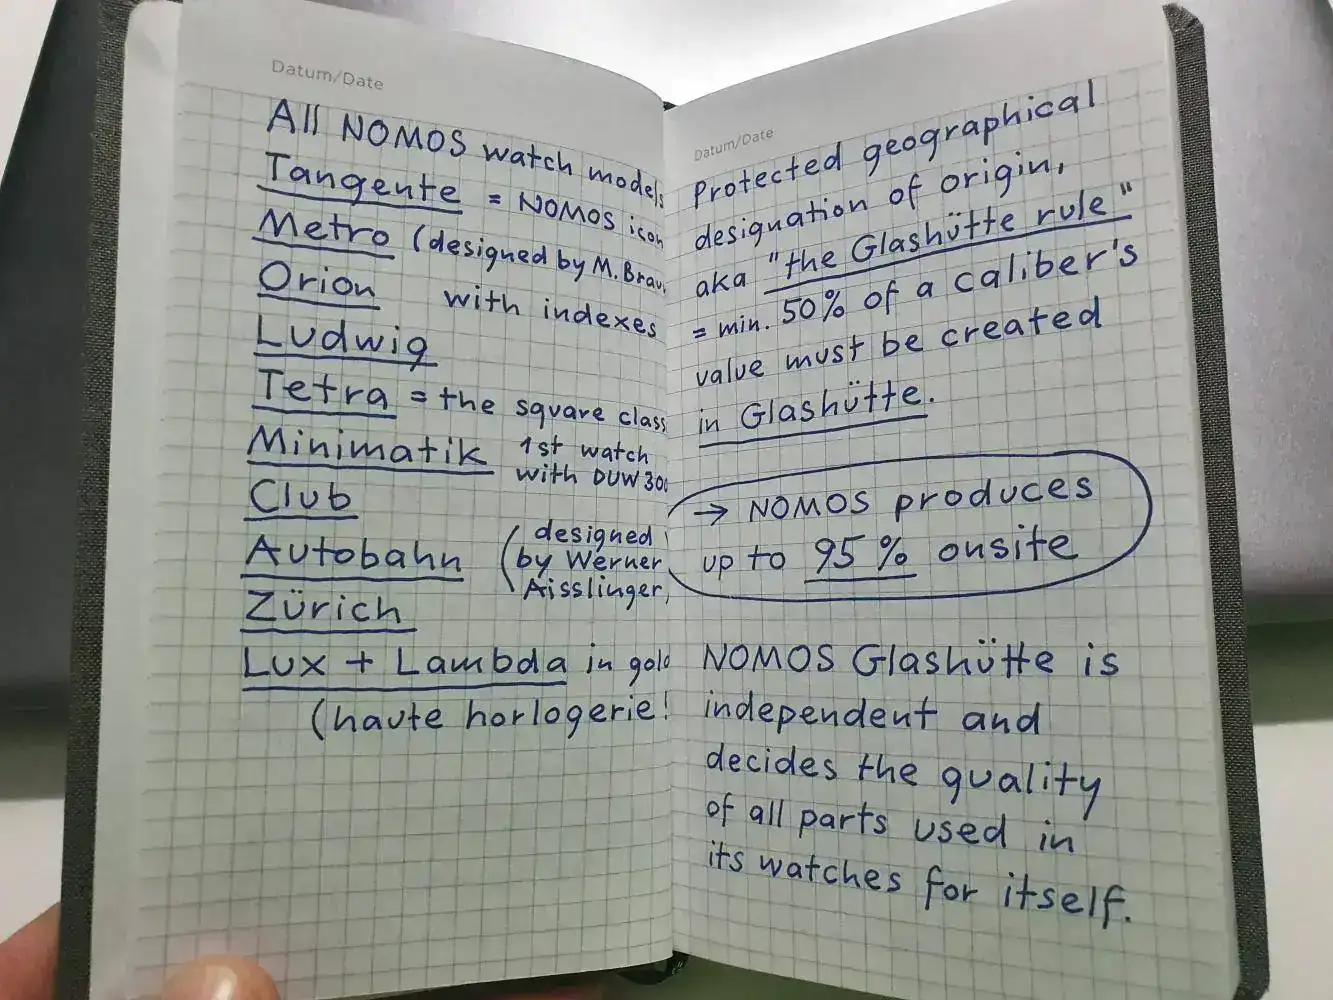 Datum/Date
All NOMOS watch models
Tangente = NOMOS icon
Metro (designed by M. Brau
Orion with indexes
Ludwig
Tetra = the square class
Minimatik 1st watch
with DUW 300
Club
Autobahn (designed
by Werner
Aisslinger,
Zürich
Lux + Lambda in gold
(haute horlogerie!
Datum/Date
Protected geographical
designation of origin,
aka "the Glashütte rule"
= min. 50% of a caliber's
value must be created
in Glashütte.
→ NOMOS produces
up to 95% onsite
NOMOS Glashütte is
independent and
decides the quality
of all parts used in
its watches for itself.